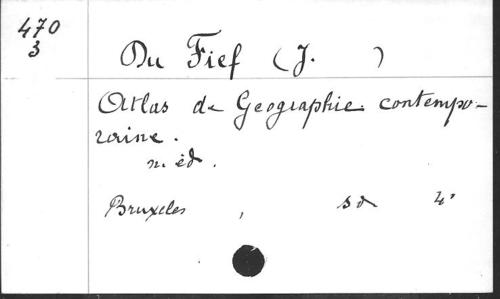 470
3
Du Fief (J. )
Atlas de Geographie contempo-
raine.
n. éd.
Bruxelles , sd 4°